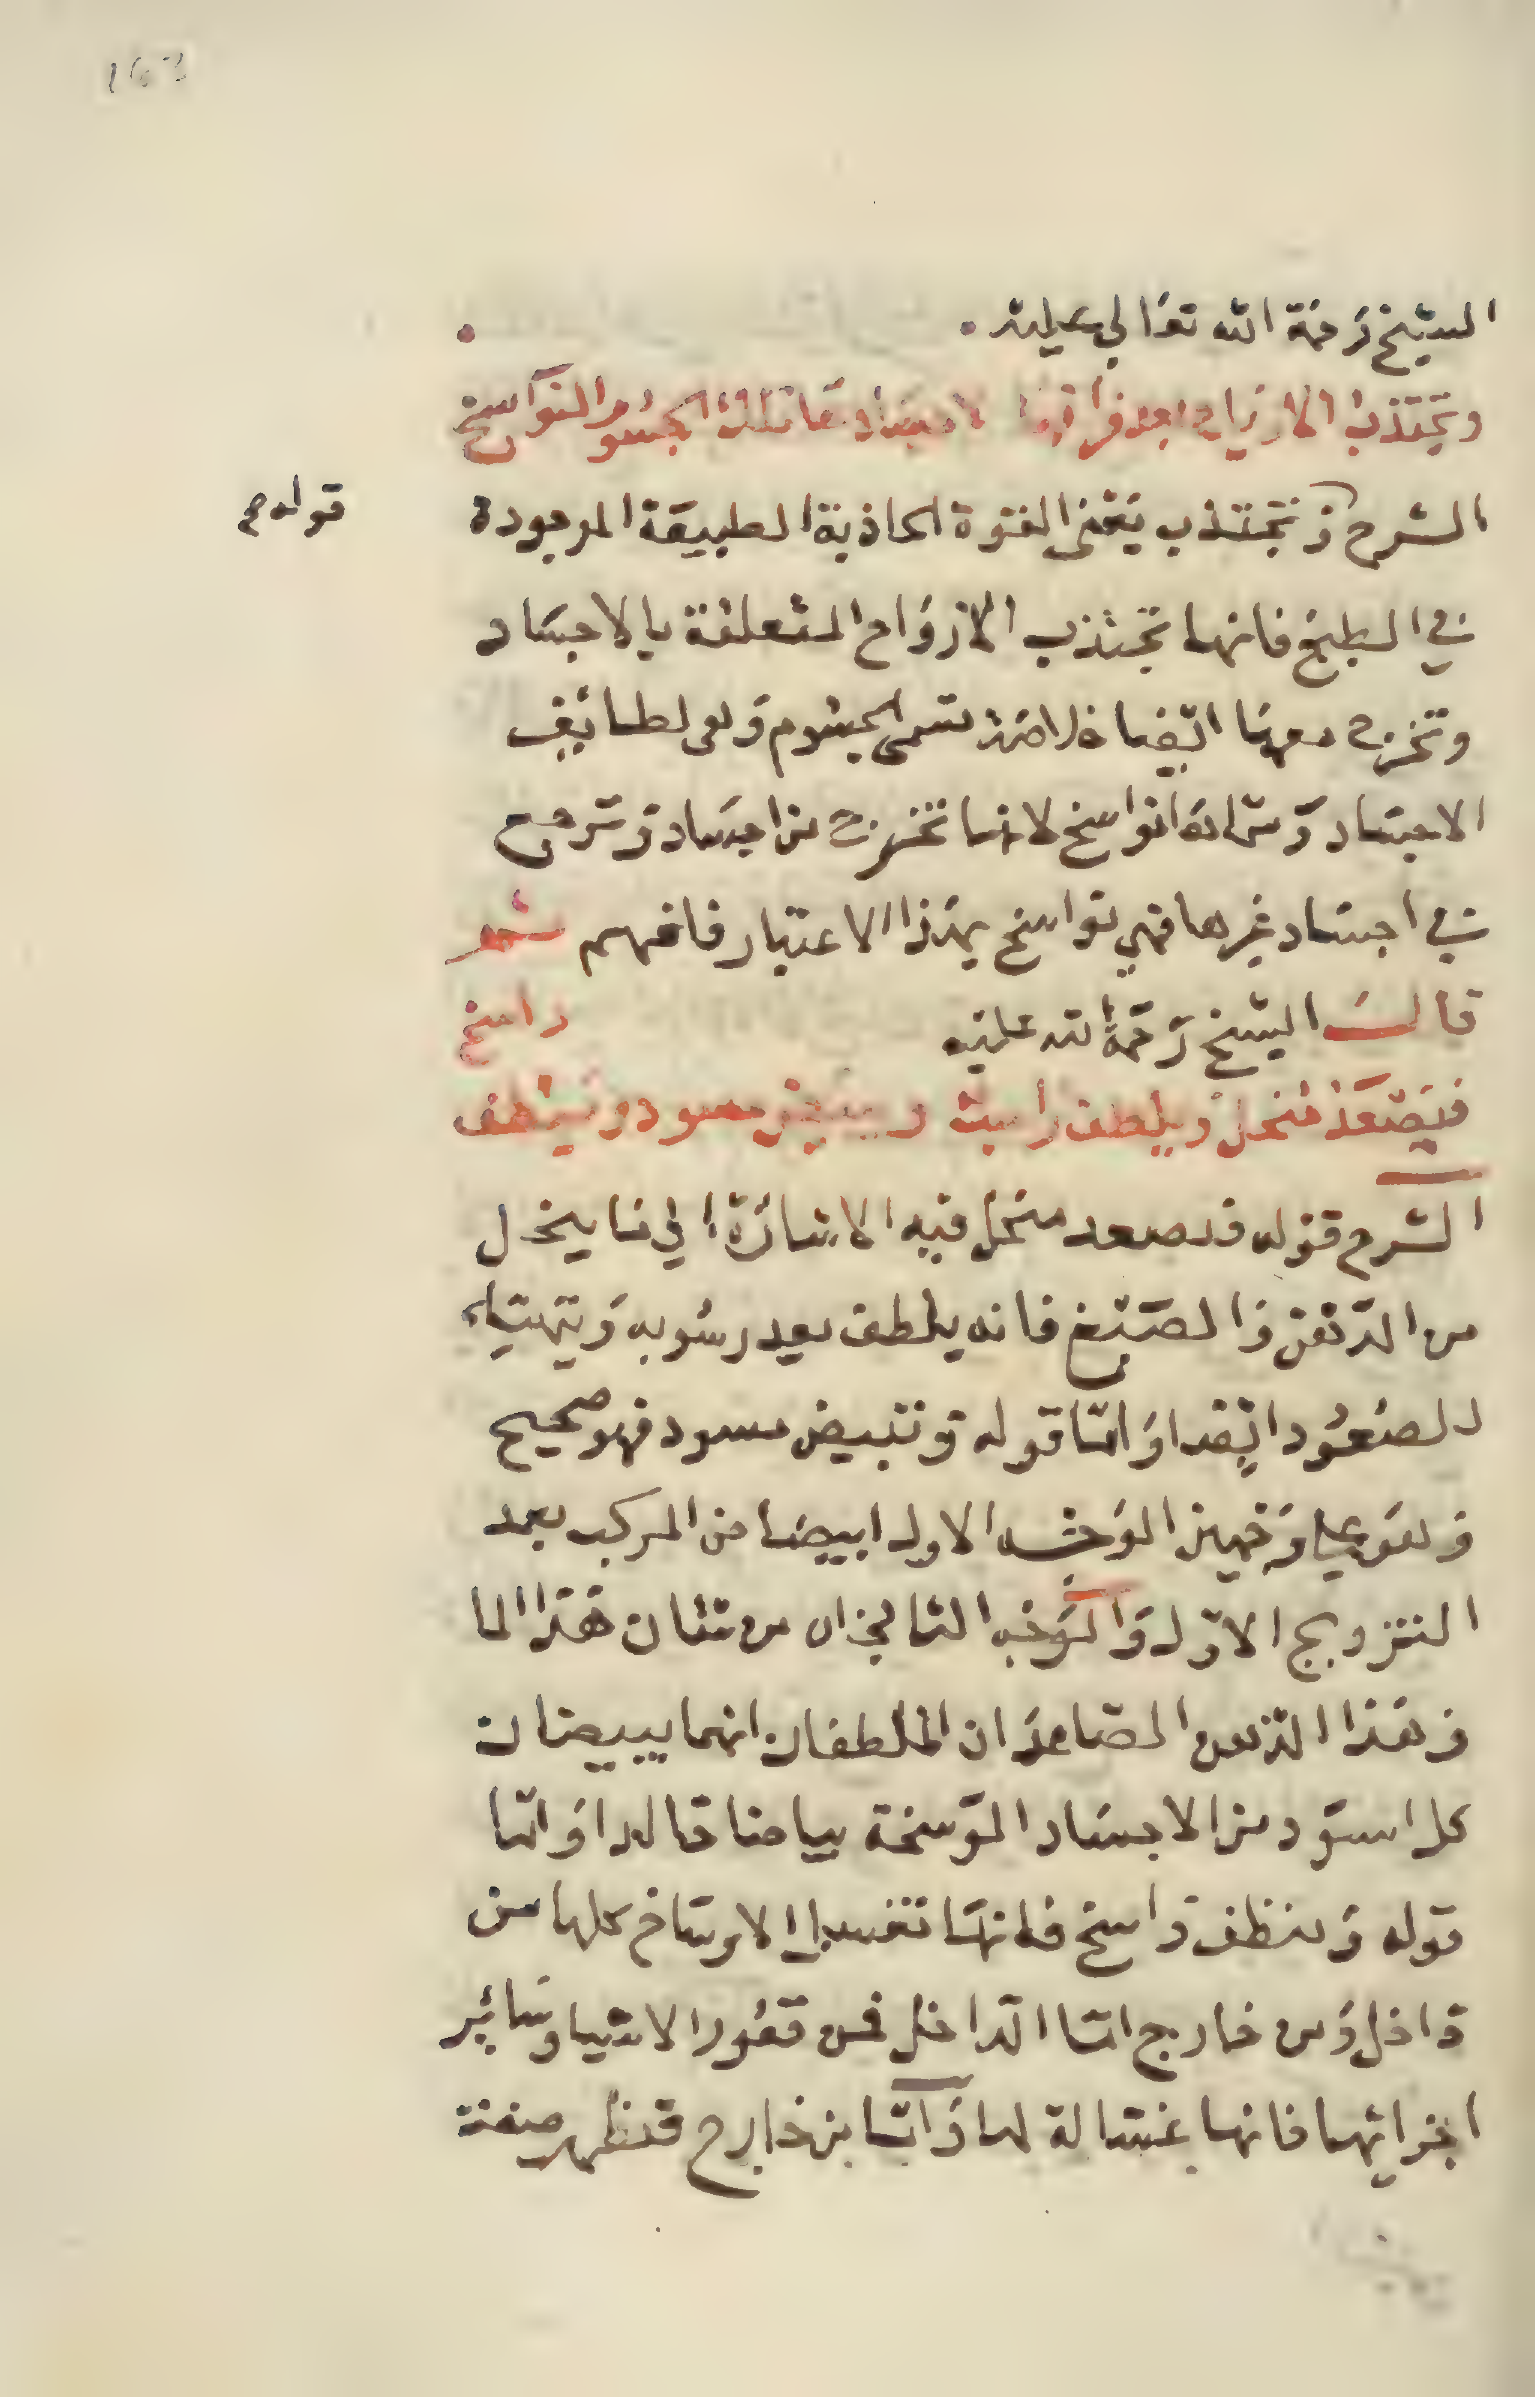 163
الشيخ رحمة الله تعالى عليه
وتجتذب الارواح بعد فراقها لاجساد الجسوم النواسخ
الشرح وتجتذب يعنى القوة الجاذبة الطبيعة الموجودة
قوله
في الطبخ فانها تجتذب الارواح المتعلقة بالاجساد
وتخرج معها ايضا خلاصة تسمى الجسوم وهى لطايف
الاجساد وسماها نواسخ لانها تخرج من اجساد وترجع
في اجساد غيرها فهي نواسخ بهذا الاعتبار فافهم
قال الشيخ رحمة الله عليه
راسخ
فيصعد منحل ويلطف راسب وبيض مسود وينظف
الشرح قوله فيصعد منحل فيه الاشارة الى ما ينحل
من الدهن والصبغ فانه يلطف بعد رسوبه ويتهيا
للصعود ايضا واما قوله وتبيض مسود فهو صحيح
وهو على وجهين الوجه الاول ابيضاض المركب بعد
التزويج الاول والوجه الثاني ان من شان هذا الما
وهذا الدهن الصاعدان الملطفان انهما يبيضان
كل اسود من الاجساد الوسخة بياضا خالدا واما
قوله وينظف واسخ فانها تغسل الاوساخ كلها من
داخل ومن خارج اما الداخل فمن قعور الاشيا وسائر
اجزائها فانها غسالة لها واما من خارج فتظهر صفة